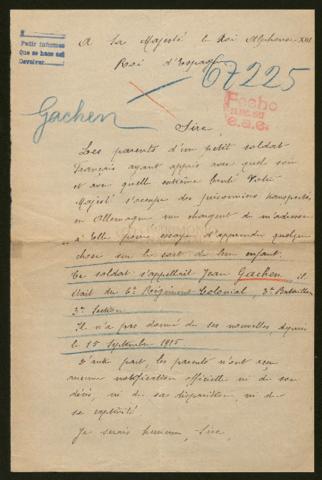 A Sa Majesté le Roi Alphonse XIII
Roi d'Espagne
Pedir informes
Que se hace así
Devolver
67225
Gachen
Fecho
Sire,
Les parents d'un petit soldat
français ayant appris avec quel soin
et avec quelle extrême bonté Votre
Majesté s'occupe des prisonniers transportés
en Allemagne me chargent de m'adresser
à Elle pour essayer d'apprendre quelque
chose sur le sort de leur enfant.
Ce soldat s'appellait Jean Gachen il
était du 6e Régiment Colonial, 3e Bataillon
3e Section
Il n'a pas donné de ses nouvelles depuis
le 15 Septembre 1915
D'autre part, les parents n'ont reçu
aucune notification officielle ni de son
décès, ni de sa disparition, ni de
sa captivité.
Je serais heureux, Sire,